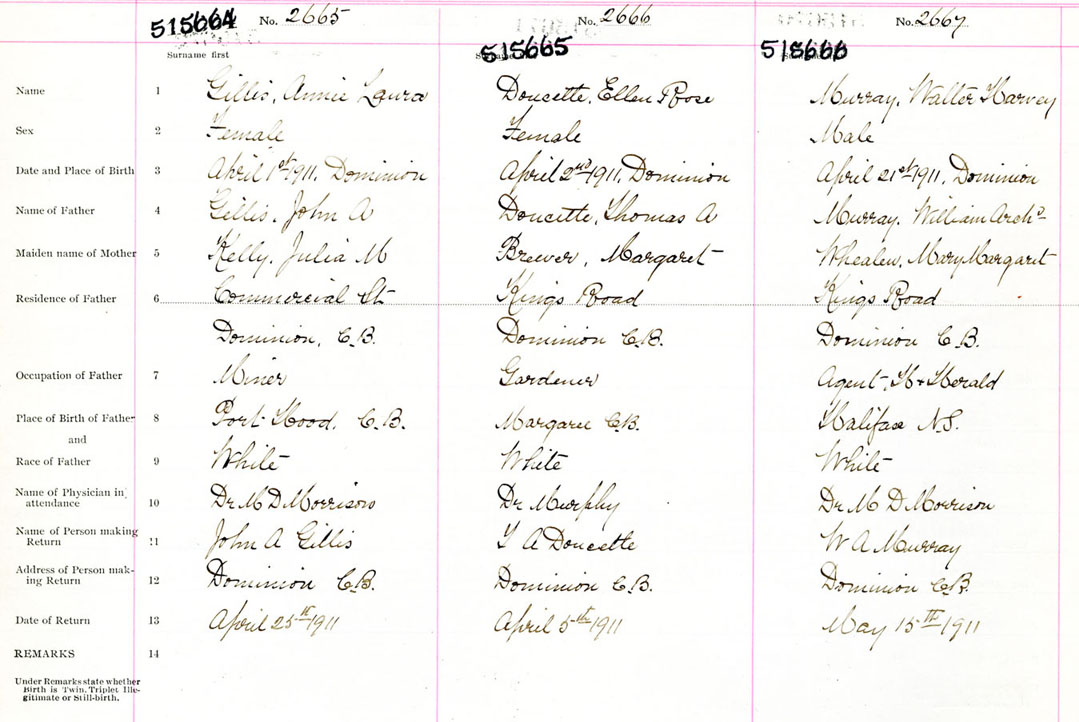 515664 No. 2665 515665 No. 2666 515666 No. 2667
Surname first
Name 1 Gillis, Annie Laura Doucette, Ellen Rose Murray, Walter Harvey
Sex 2 Female Female Male
Date and Place of Birth 3 April 1st 1911, Dominion April 2nd 1911, Dominion April 21st 1911, Dominion
Name of Father 4 Gillis, John A Doucette, Thomas A Murray, William Archd
Maiden name of Mother 5 Kelly, Julia M Brewer, Margaret Whealen, Mary Margaret
Residence of Father 6 Commercial St Kings Road Kings Road
Dominion, C.B. Dominion C.B. Dominion C.B.
Occupation of Father 7 Miner Gardener Agent, H + Herald
Place of Birth of Father 8 Port Hood, C.B. Margaree C.B. Halifax N.S.
and
Race of Father 9 White White White
Name of Physician in
attendance 10 Dr M D Morrison Dr Murphy Dr M D Morrison
Name of Person making
Return 11 John A Gillis T A Doucette W A Murray
Address of Person mak-
ing Return 12 Dominion C.B. Dominion C.B. Dominion C.B.
Date of Return 13 April 25th 1911 April 5th 1911 May 15th 1911
REMARKS 14
Under Remarks state whether
Birth is Twin, Triplet, Ille-
gitimate or Still-birth.